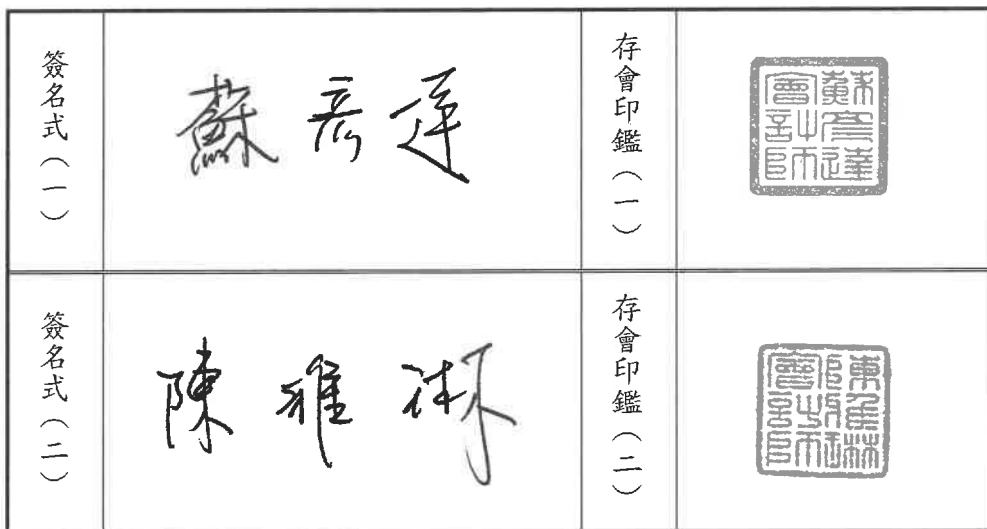 簽名式(一)
蘇彥達
存會印鑑(一)
蘇彥達會計師
簽名式(二)
陳雅琳
存會印鑑(二)
陳雅琳會計師